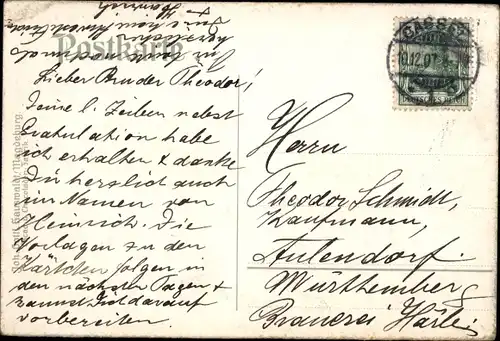 Postkarte
CASSEL
10.12.07
DEUTSCHES REICH
Lieber Bruder Theodor!
Deine l. Zeilen nebst
Gratulation habe
ich erhalten & danke
Dir herzlich auch
im Namen von
Heinrich. Die
Vorlagen zu den
Kärtchen folgen in
den nächsten Tagen &
kannst Dich darauf
vorbereiten.
Herrn
Theodor Schmidt,
Kaufmann,
Aulendorf.
Württemberg
Brauerei Härle